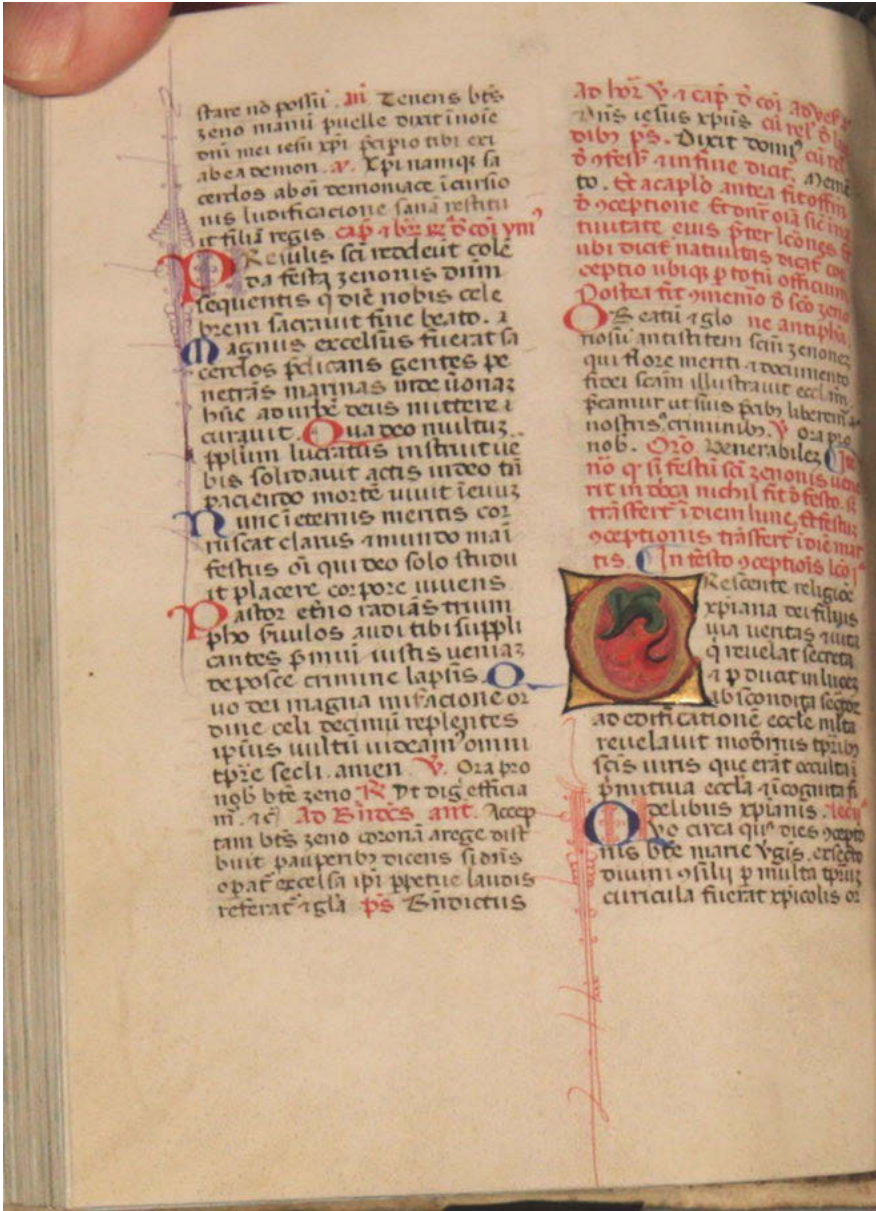 stare nō possū. an̄ Tenens bt̄s
zeno manū puelle dixit ī noīe
dn̄i mei iesu xp̄i p̄cipio tibi exi
ab ea demon. a. Xp̄i namqꝫ sa
cerdos ab oi demoniace īcursio
nis ludificacione sanā restitu
it filiā regis cap̄ ⁊ br̄ꝫ
Reiulis sc̄i
da festa zenonis dum
sequentis q̄ diē nobis cele
brem sacravit fine beato. a
Magnus excelsus fuerat sa
cerdos p̄dicans gentes pe
netrās marinas inde
ad urbē deus mittere
curavit. Qua deo multuꝫ
pp̄lum lucratus instruit ve
bis solidavit actis in deo
paciendo mortē vivit ī evuꝫ
Nunc ī eternis meritis cor
ruscat clarus ⁊ mundo mai
festus oī qui deo solo studu
it placere corpore vivens
Pastor et̄no radiās trium
pho s̄vulos audi tibi suppli
cantes veniaꝫ
deposce crimine lapsis. Q
uo dei magna mis̄acione or
dine celi decimū replentes
ipsius vultū videam᷒ omni
tp̄re secli. amen. V̄. Ora pro
nob bt̄e zeno R̄ Vt dig efficia
m̄. ⁊c̄ Ad Bn̄dc̄s. ant. Accep
tam bt̄s zeno coronā a rege dist̄
buit pauperibꝫ dicens si dn̄s
opat̄ excelsa ip̄i ppetue laudis
referat̄ ⁊ gl̄a p̄s Bn̄dictus
Ad
Dn̄s iesus xp̄us cū rel̄
dibꝫ p̄s. Dixit domi᷒ cū
⁊ in fine dicit̄. Memē
to. Et a cap̄lo antea fit offm̄
d̄ ꝯceptione Et dn̄r oīa sic in
tivitate eius p̄ter lc̄ones
ubi dicit̄ nativitas dicat̄ con
ceptio ubiqꝫ p totū officium
Postea fit ꝯmemō d̄ sc̄o zeno
O Beatū ⁊ glo ne antipha.
riosū antistitem sc̄m zenoneꝫ
qui flore meriti ⁊ documento
fidei sc̄am illustravit eccl̄am
p̄camur ut suis p̄cibꝫ
nostris criminibꝫ. V̄ Ora pro
nob. Orō Venerabilez
nō qꝫ si festū sc̄i zenonis vene
rit in dōca nichil fit d̄ festo. sꝫ
trāsfert̄ ī diem lune. Et festuꝫ
ꝯceptionis trāsfert̄ ī diē mar
tis. In festo ꝯceptiōis lc̄o ī
CRescente religiōe
xp̄iana dei filius
via veritas ⁊ vita
q̄ revelat secreta
⁊ p ducit in luceꝫ
abscondita
ad edificationē eccl̄e
revelavit modernis tp̄ribꝫ
sc̄is viris que erāt occulta ī
p̄mitiva eccl̄a ⁊ īcognita fi
delibus xp̄ianis.
Quo circa dies ꝯceptō
nis bt̄e marie v̄gis. ex secto
divini ꝯsilij p multa tp̄ruꝫ
curicula fuerat xp̄icolis oc